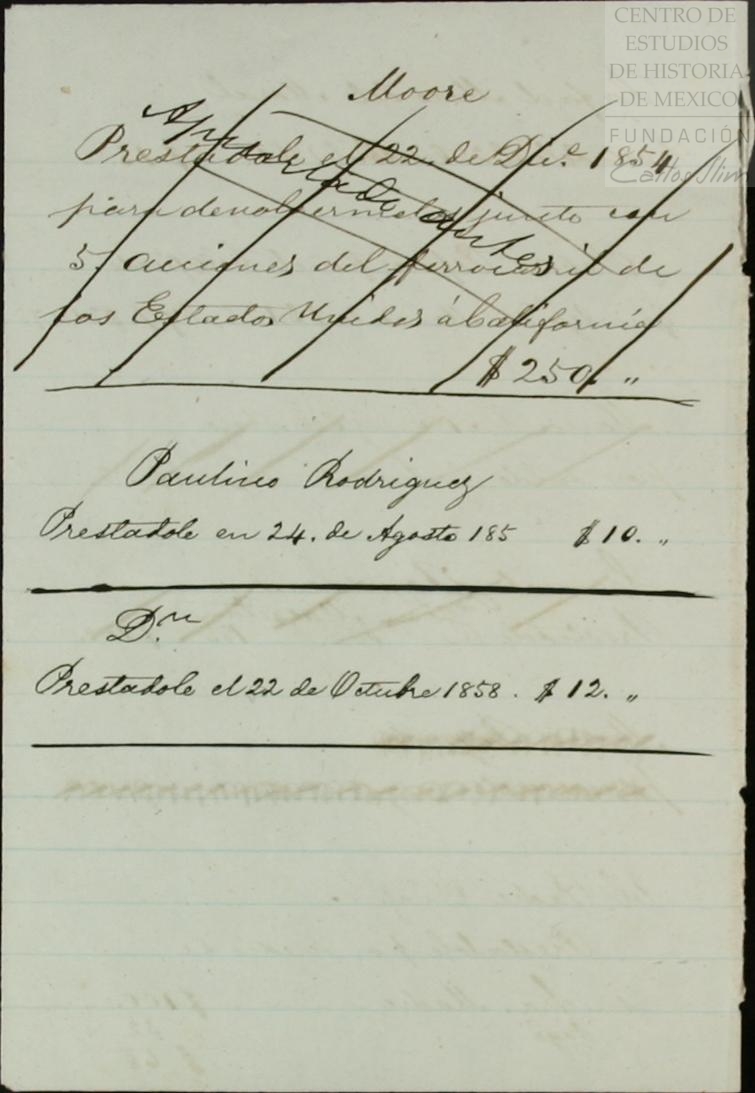 CENTRO DE
ESTUDIOS
DE HISTORIA
DE MEXICO
FUNDACIÓN
Carlos Slim
Moore
Prestadole el 22 de Dic.e 1854
para devolvermelos junto con
5. acciones del ferrocarril de
los Estados Unidos á California
$ 250. „
Apuntado antes
Paulino Rodriguez
Prestadole en 24. de Agosto 185 $ 10. „
D.n
Prestadole el 22 de Octubre 1858. $ 12. „